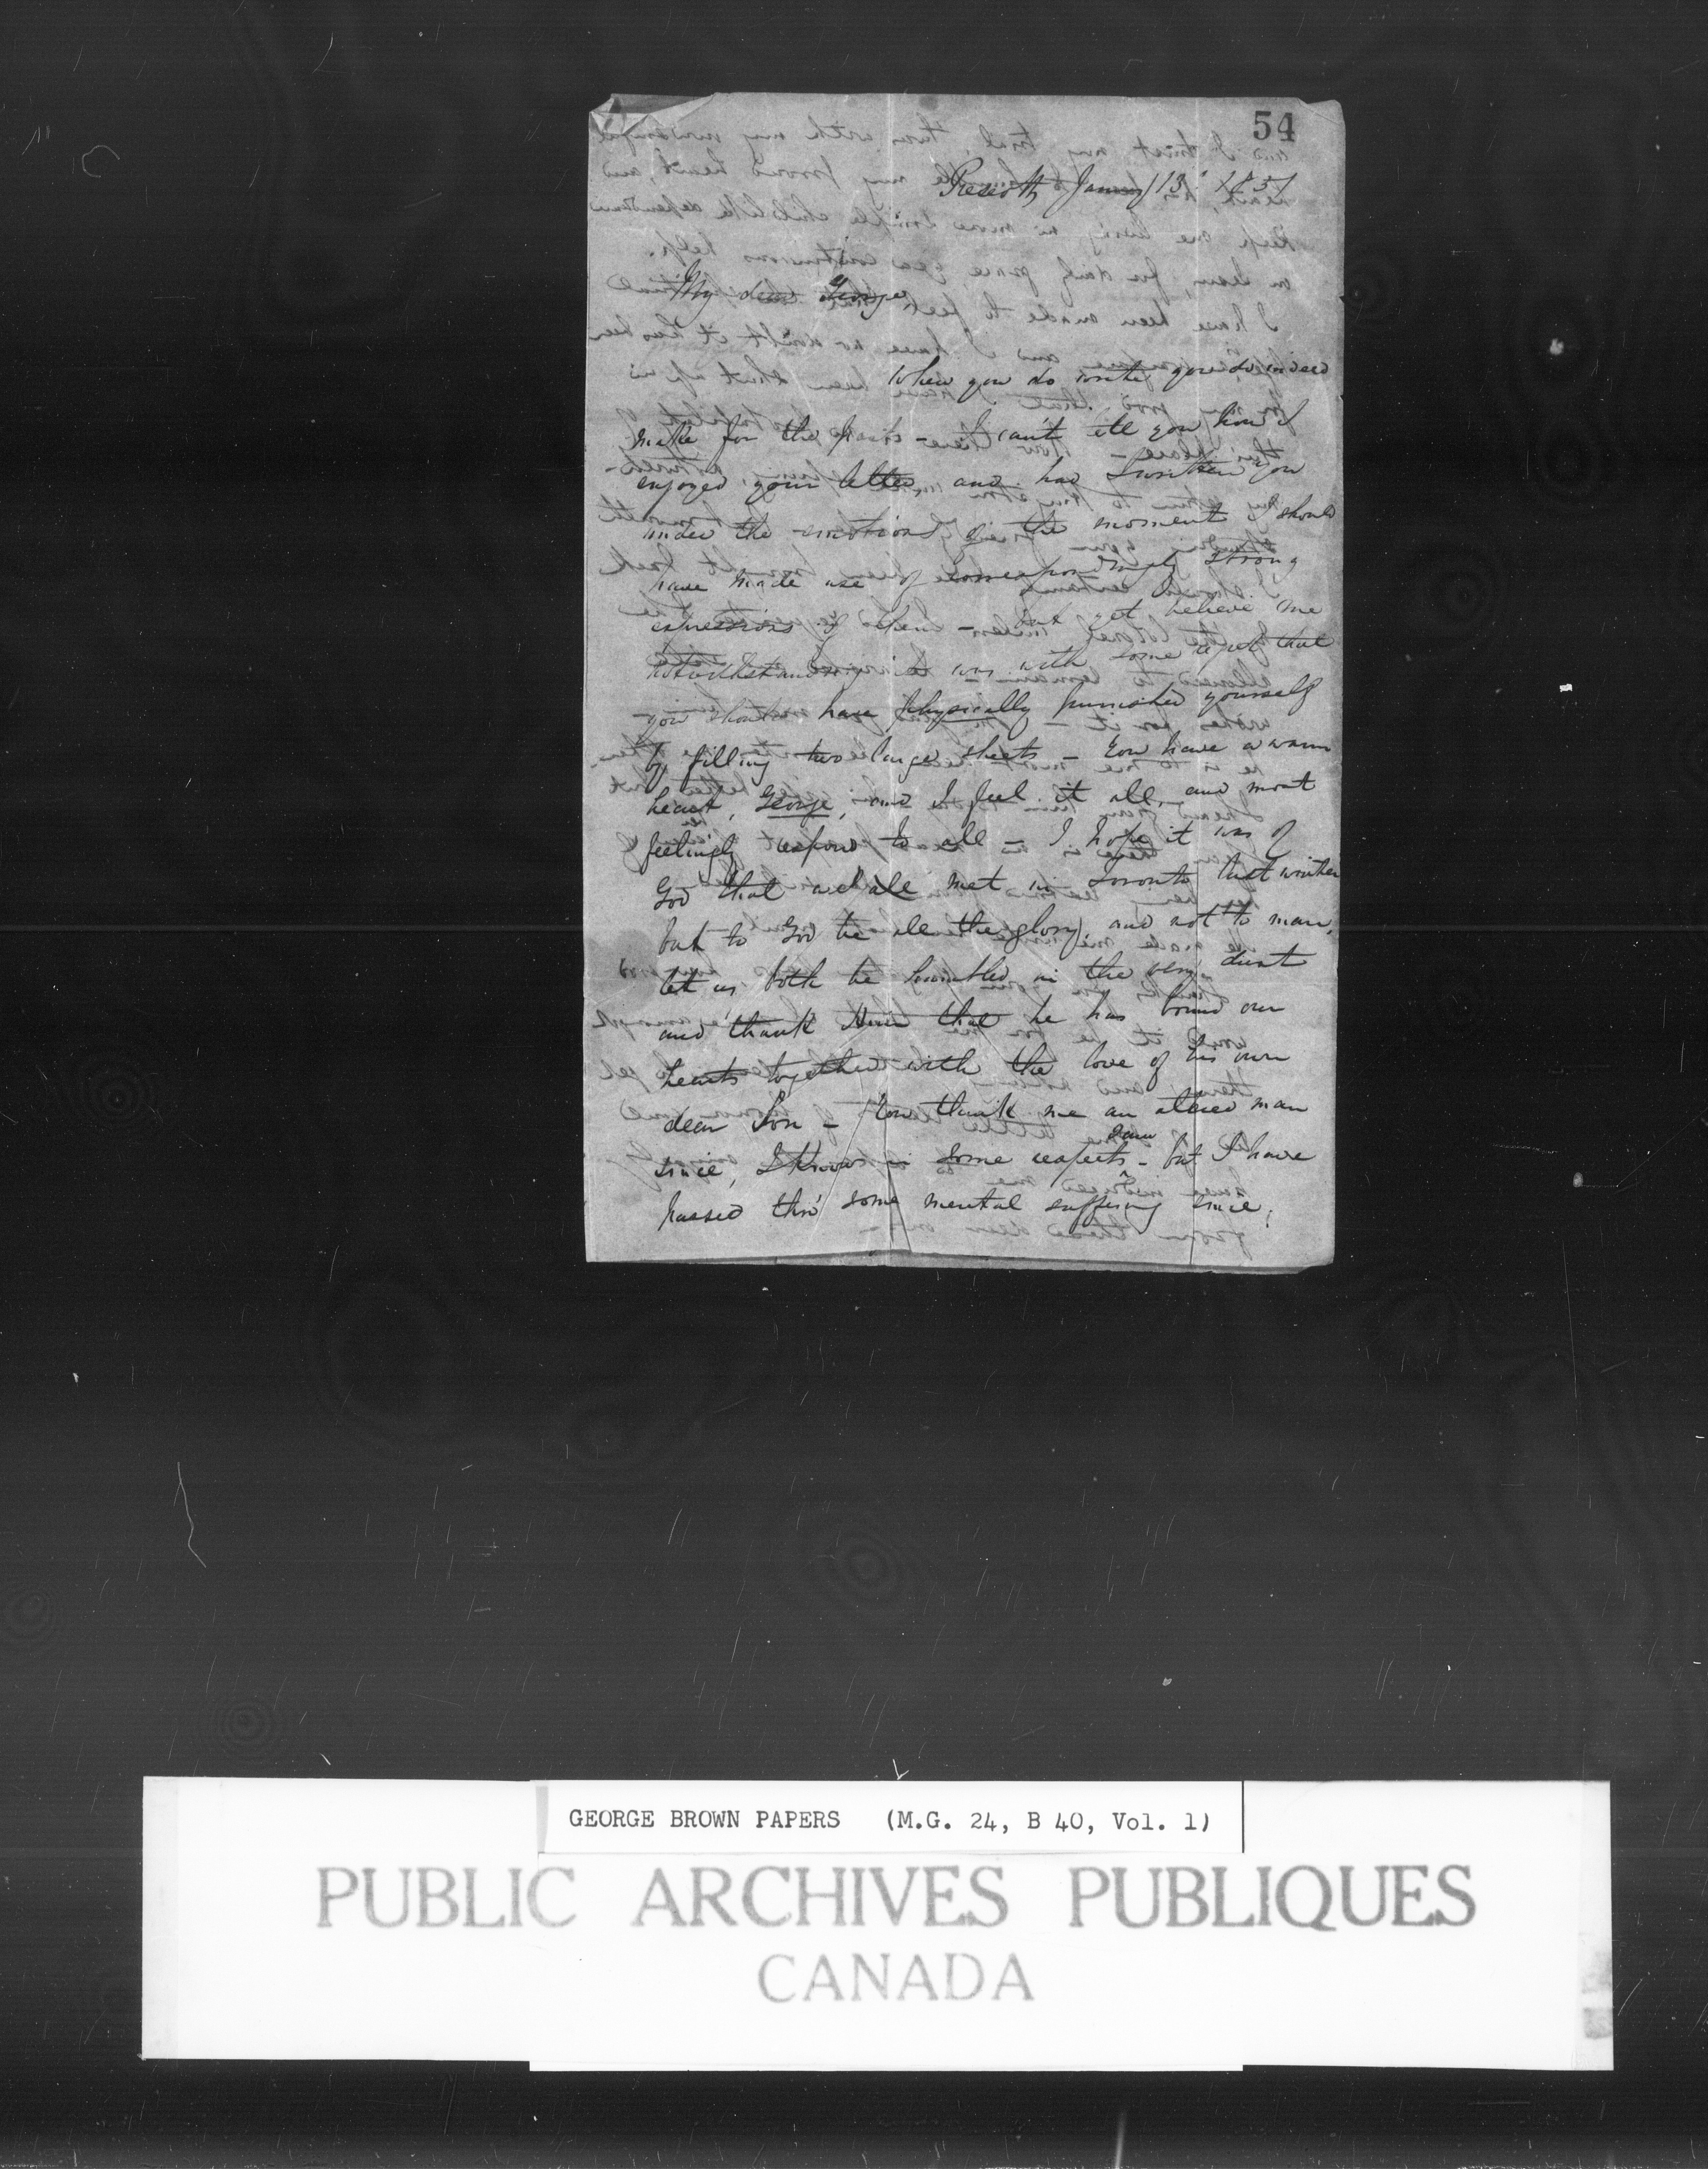 54
Prescott January 13. 1851
My dear George,
When you do write you do indeed
make for the past - I can't tell you how I
enjoyed your letter, and had I written you
under the emotions of the moment I should
have made use of correspondingly strong
expressions of them - but yet, believe me
notwithstanding it was with some regret that
you should have physically punished yourself
by filling two large sheets - You have a warm
heart, George, and I feel it all, and most
feelingly respond to all - I hope it was of
God that we all met in Toronto last winter
but to God be all the glory, and not to man,
let us both be humbled in the very dust
and thank Him that he has bound our
hearts together with the love of his own
dear Son - You think me an altered man
since, I know in some respects I am - but I have
passed thro' some mental suffering since,
GEORGE BROWN PAPERS (M.G. 24, B 40, Vol. 1)
PUBLIC ARCHIVES PUBLIQUES
CANADA